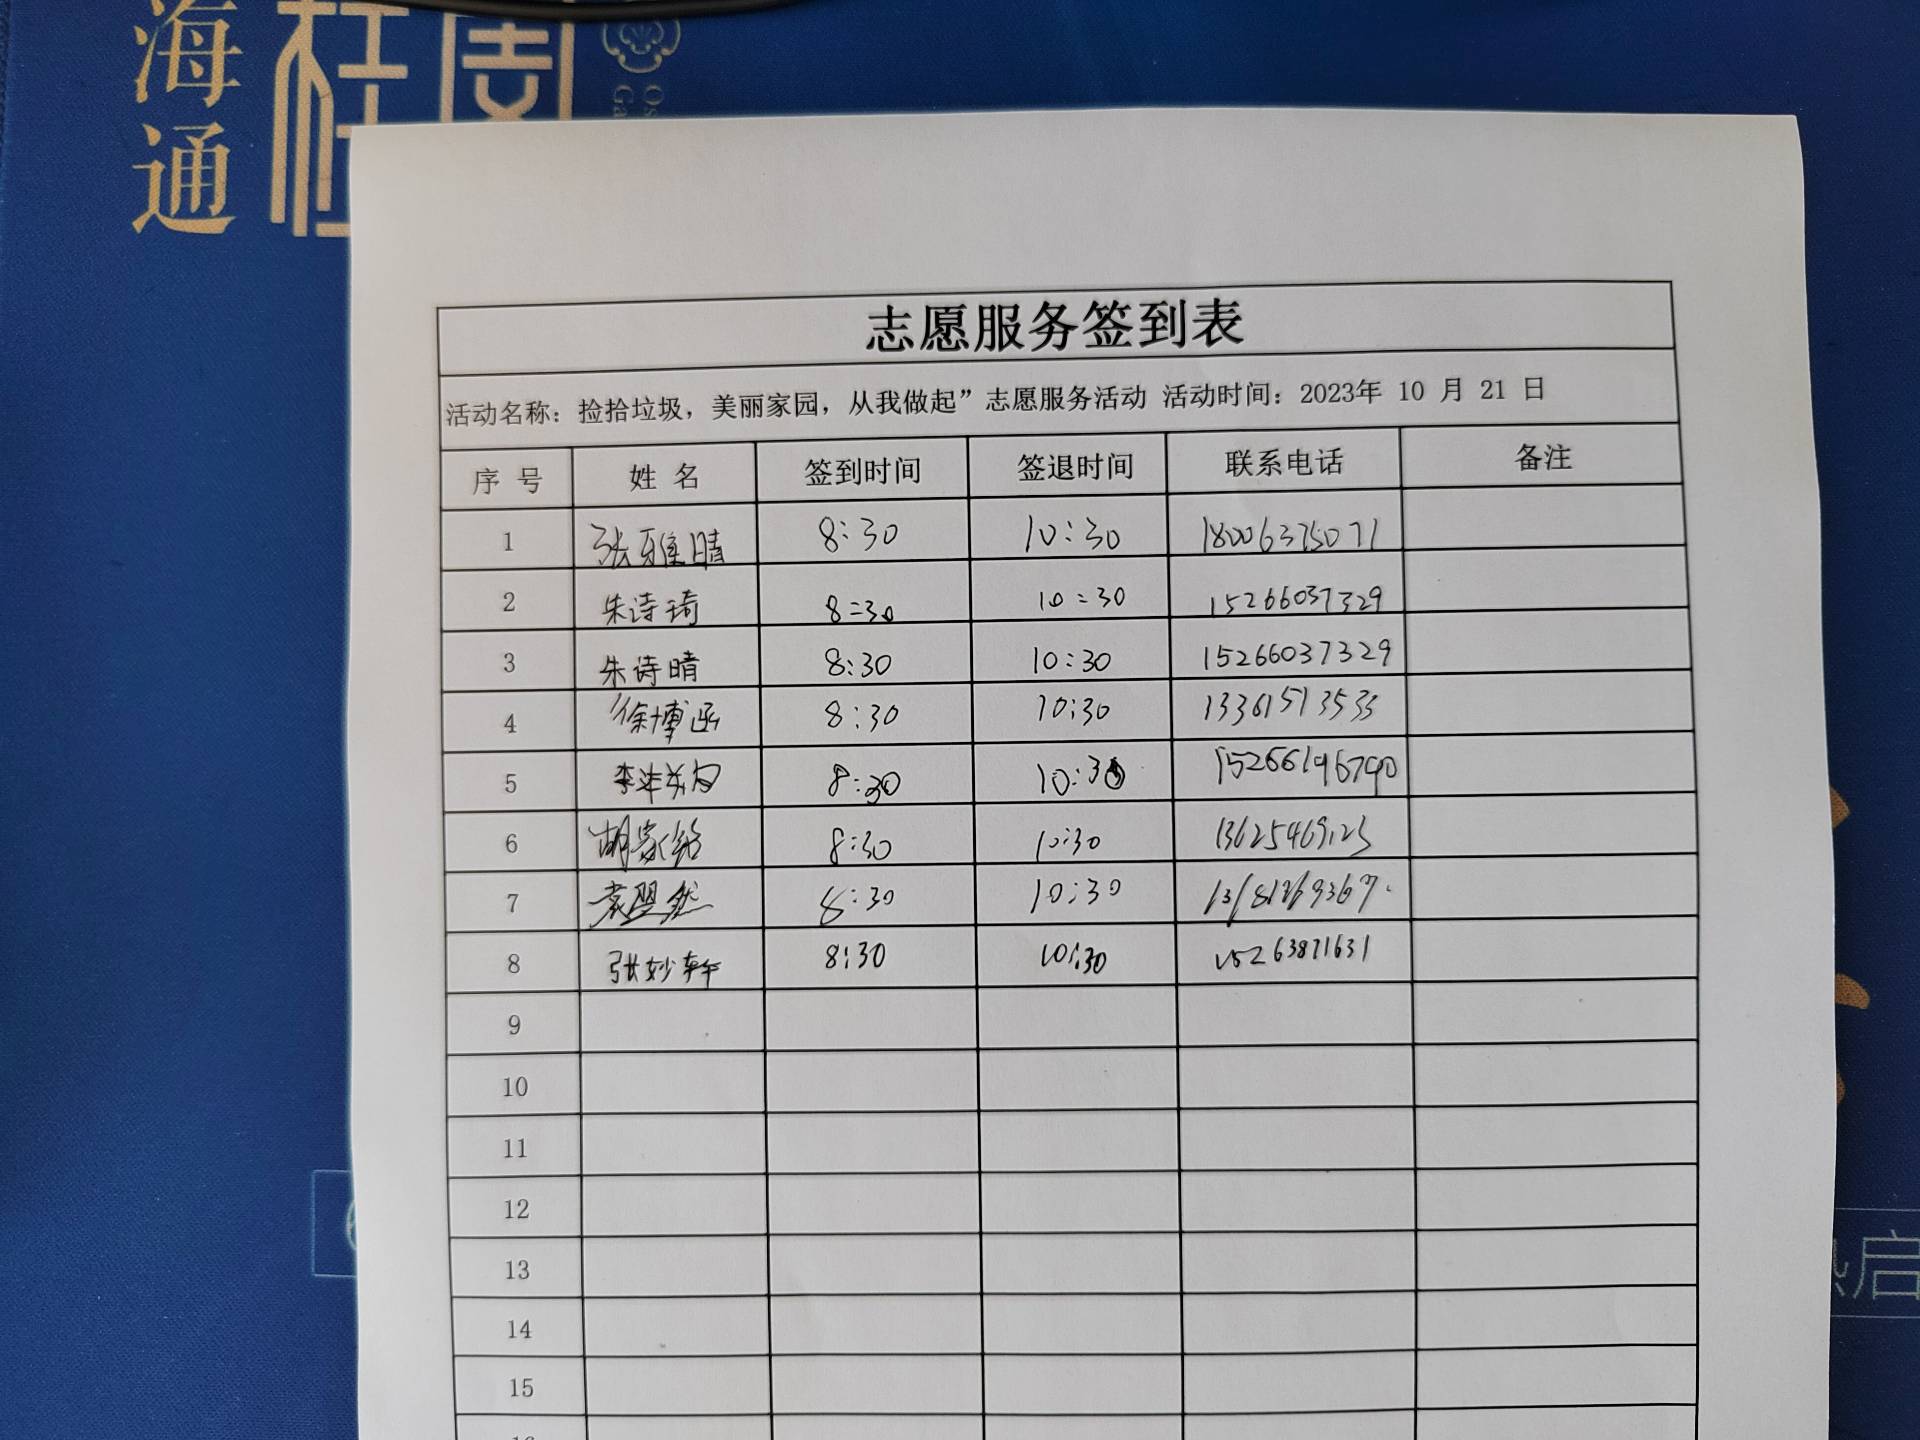 海通
桂園
Os
Ga
志愿服务签到表
活动名称：捡拾垃圾，美丽家园，从我做起”志愿服务活动 活动时间：2023年 10 月 21 日
序 号 姓 名 签到时间 签退时间 联系电话 备注
1 张雅晴 8:30 10:30 18006375071
2 朱诗琦 8:30 10:30 15266037329
3 朱诗晴 8:30 10:30 15266037329
4 徐博函 8:30 10:30 13361513533
5 8:30 10:30 15266196790
6 胡家铭 8:30 10:30 13625469123
7 8:30 10:30
8 张妙轩 8:30 10:30 15263871631
9
10
11
12
13
14
15
启